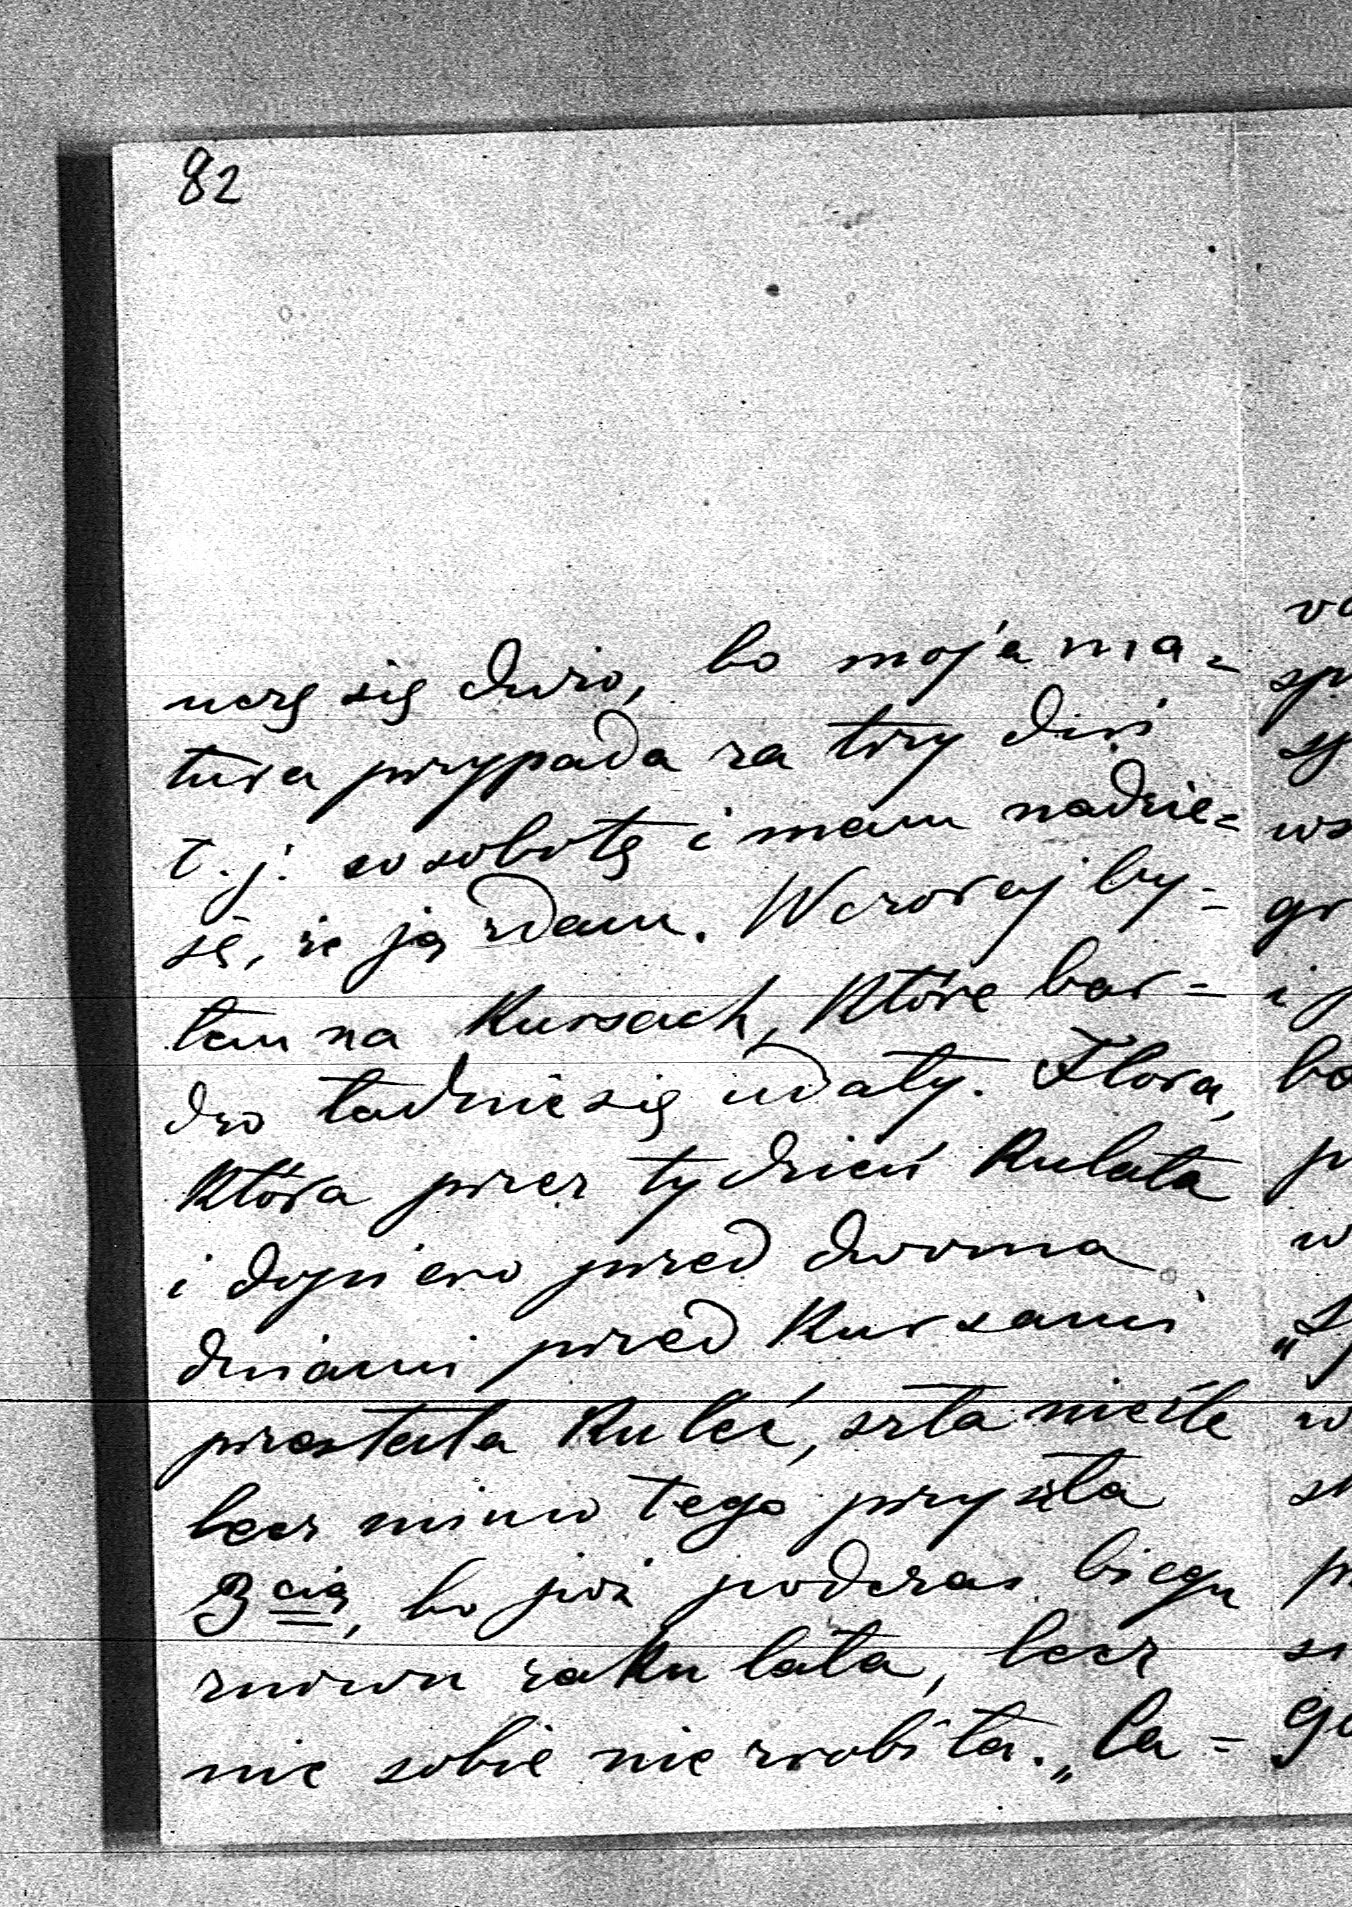 82
uczę się dużo, bo moja ma=
tura przypada za trzy dni
t. j. w sobotę i mam nadzie=
ję, że ją zdam. Wczoraj by=
łam na Kursach, które bar=
dzo ładnie się udały. Flora,
która przez tydzień kulała
i dopiero przed dwoma
dniami przed Kursami
przestała kuleć, szła nieźle
lecz mimo tego przyszła
3cią, bo już podczas biegu
znowu zakulała, lecz
nic sobie nie zrobiła. „La=